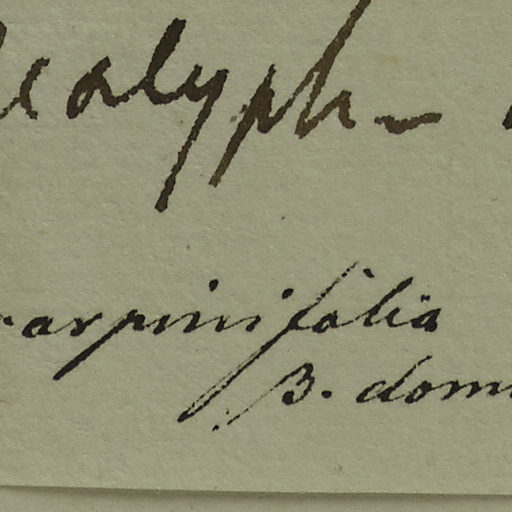 calyph-
carpinifolia
β. dom